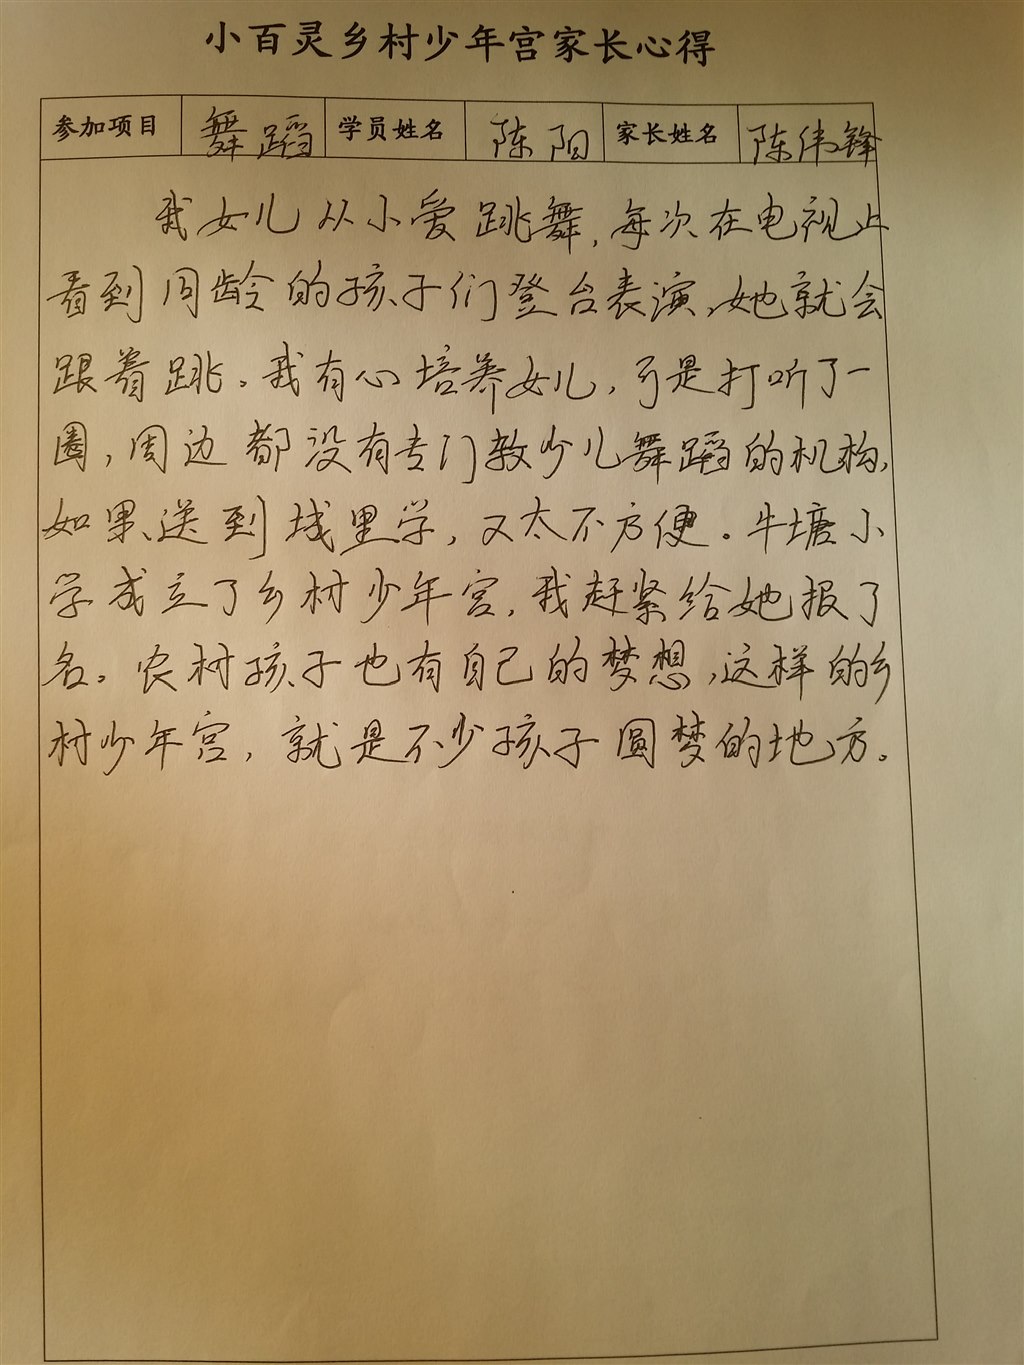 小百灵乡村少年宫家长心得
参加项目 舞蹈 学员姓名 陈阳 家长姓名 陈伟锋
我女儿从小爱跳舞,每次在电视上
看到同龄的孩子们登台表演,她就会
跟着跳。我有心培养女儿,于是打听了一
圈,周边都没有专门教少儿舞蹈的机构,
如果送到城里学,又太不方便。牛塘小
学成立了乡村少年宫,我赶紧给她报了
名。农村孩子也有自己的梦想,这样的乡
村少年宫,就是不少孩子圆梦的地方。